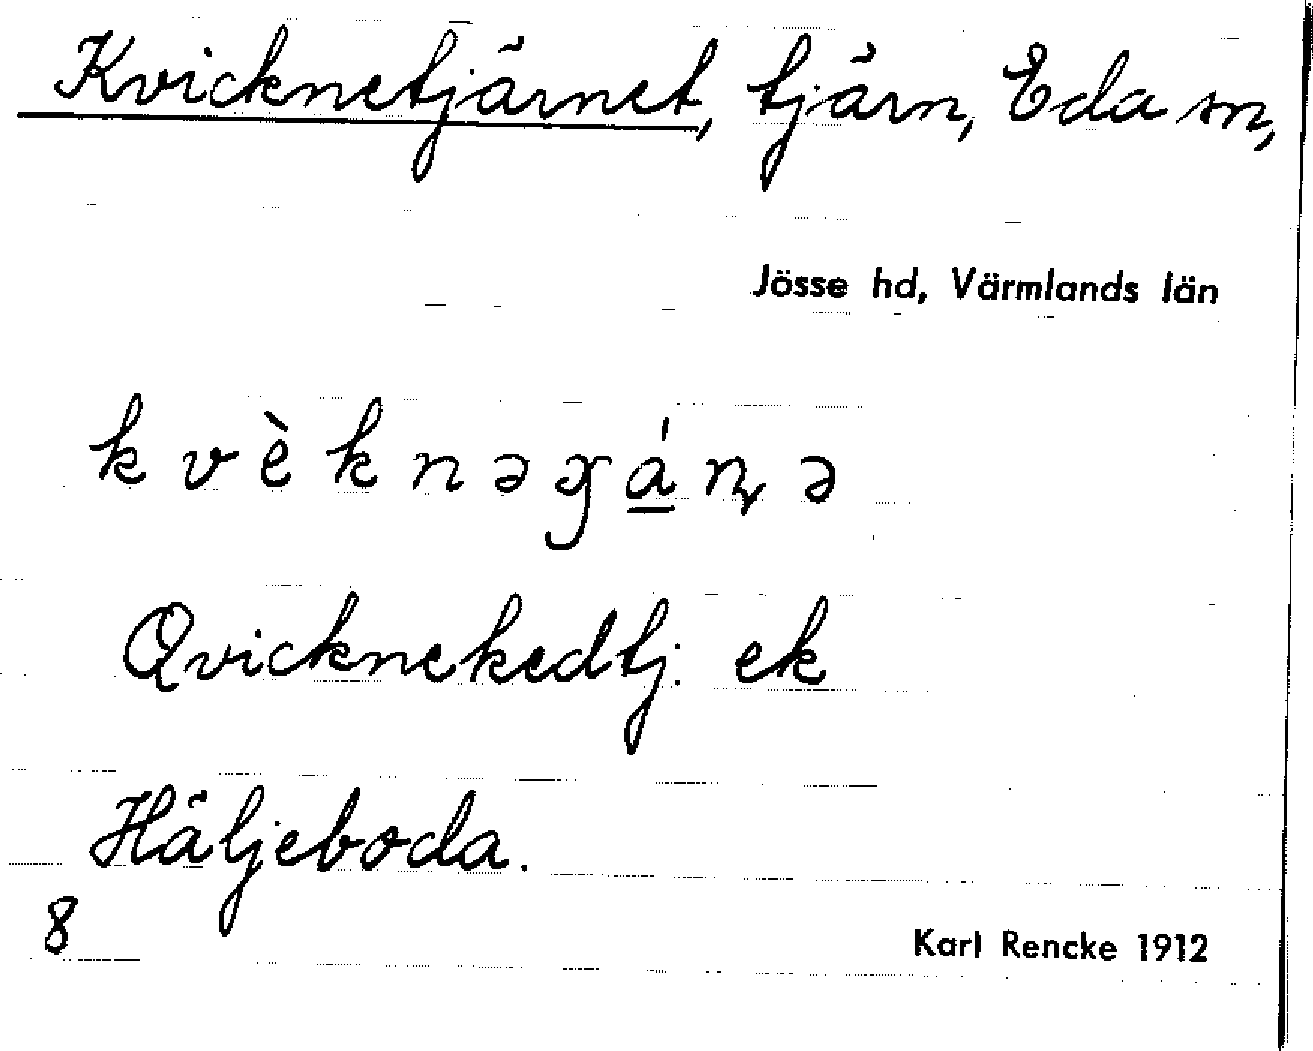 Kvicknetjärnet, tjärn, Eda sn,
Jösse hd, Värmlands län
kvèknəɡ̯á̱ɳə
Qvicknekedtj. ek
Häljeboda.
8
Karl Rencke 1912